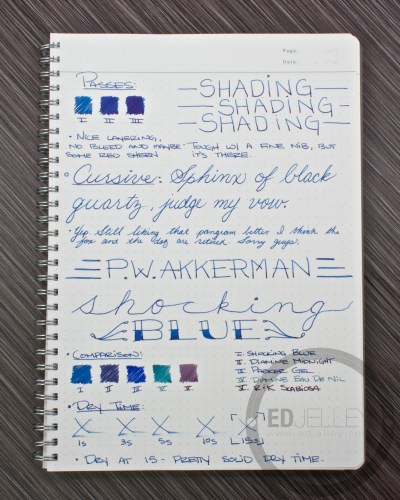 Page:
Date:
Passes:
I II III
—SHADING—
—SHADING—
—SHADING—
• NICE LAYERING,
NO BLEED AND MAYBE
SOME RED SHEEN
TOUGH W/ A FINE NIB, BUT
IT'S THERE
Cursive: Sphinx of black
quartz, judge my vow.
• Yip still liking that pangram better I think the
fox and the dog are retired. Sorry guys.
P.W. AKKERMAN
shocking
BLUE
• COMPARISON:
I II III IV V
I. SHOCKING BLUE
II. DIAMINE MIDNIGHT
III. PARKER GEL
IV. DIAMINE EAU DE NIL
V. R+K SCABIOSA
• DRY TIME:
1s 3s 5s 10s 15s
• DRY AT 15 - PRETTY SOLID DRY TIME.
EDJELLEY